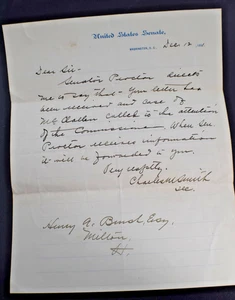 United States Senate,
WASHINGTON, D. C.
Dec 12, 
Dear Sir-
Senator Proctor directs
me to say that your letter has
been received and case of
McClallan called to the attention
of the Commissioner. When Sen.
Proctor receives information
it will be forwarded to you.
Very respectfly,
Charles M Smith
Sec.
Henry A. Esq,
Milton,
Vt.